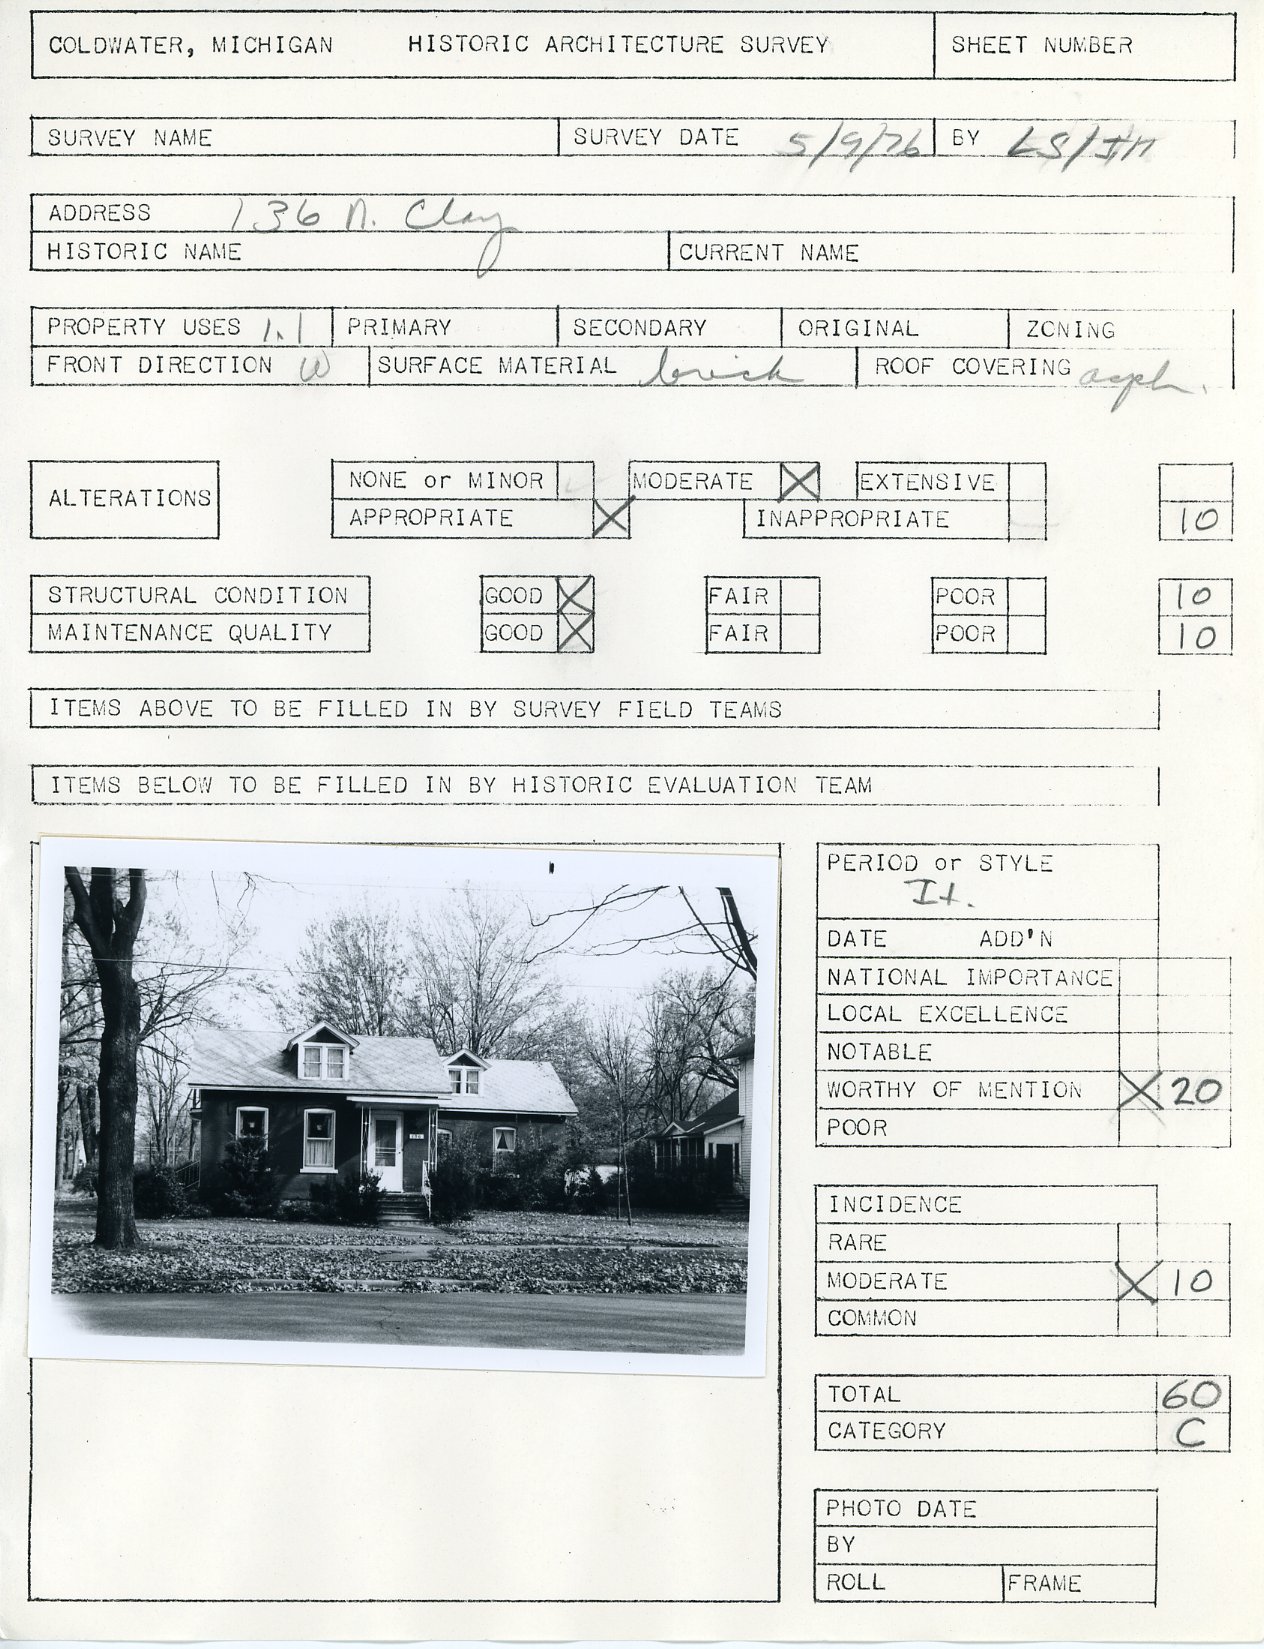 COLDWATER, MICHIGAN HISTORIC ARCHITECTURE SURVEY SHEET NUMBER
SURVEY NAME SURVEY DATE 5/9/76 BY LS/
ADDRESS 136 N. Clay
HISTORIC NAME CURRENT NAME
PROPERTY USES 1.1 PRIMARY SECONDARY ORIGINAL ZONING
FRONT DIRECTION W SURFACE MATERIAL brick ROOF COVERING asph.
ALTERATIONS
NONE or MINOR MODERATE X EXTENSIVE
APPROPRIATE X INAPPROPRIATE 10
STRUCTURAL CONDITION GOOD X FAIR POOR 10
MAINTENANCE QUALITY GOOD X FAIR POOR 10
ITEMS ABOVE TO BE FILLED IN BY SURVEY FIELD TEAMS
ITEMS BELOW TO BE FILLED IN BY HISTORIC EVALUATION TEAM
136
PERIOD or STYLE
It.
DATE ADD'N
NATIONAL IMPORTANCE
LOCAL EXCELLENCE
NOTABLE
WORTHY OF MENTION X 20
POOR
INCIDENCE
RARE
MODERATE X 10
COMMON
TOTAL 60
CATEGORY C
PHOTO DATE
BY
ROLL FRAME